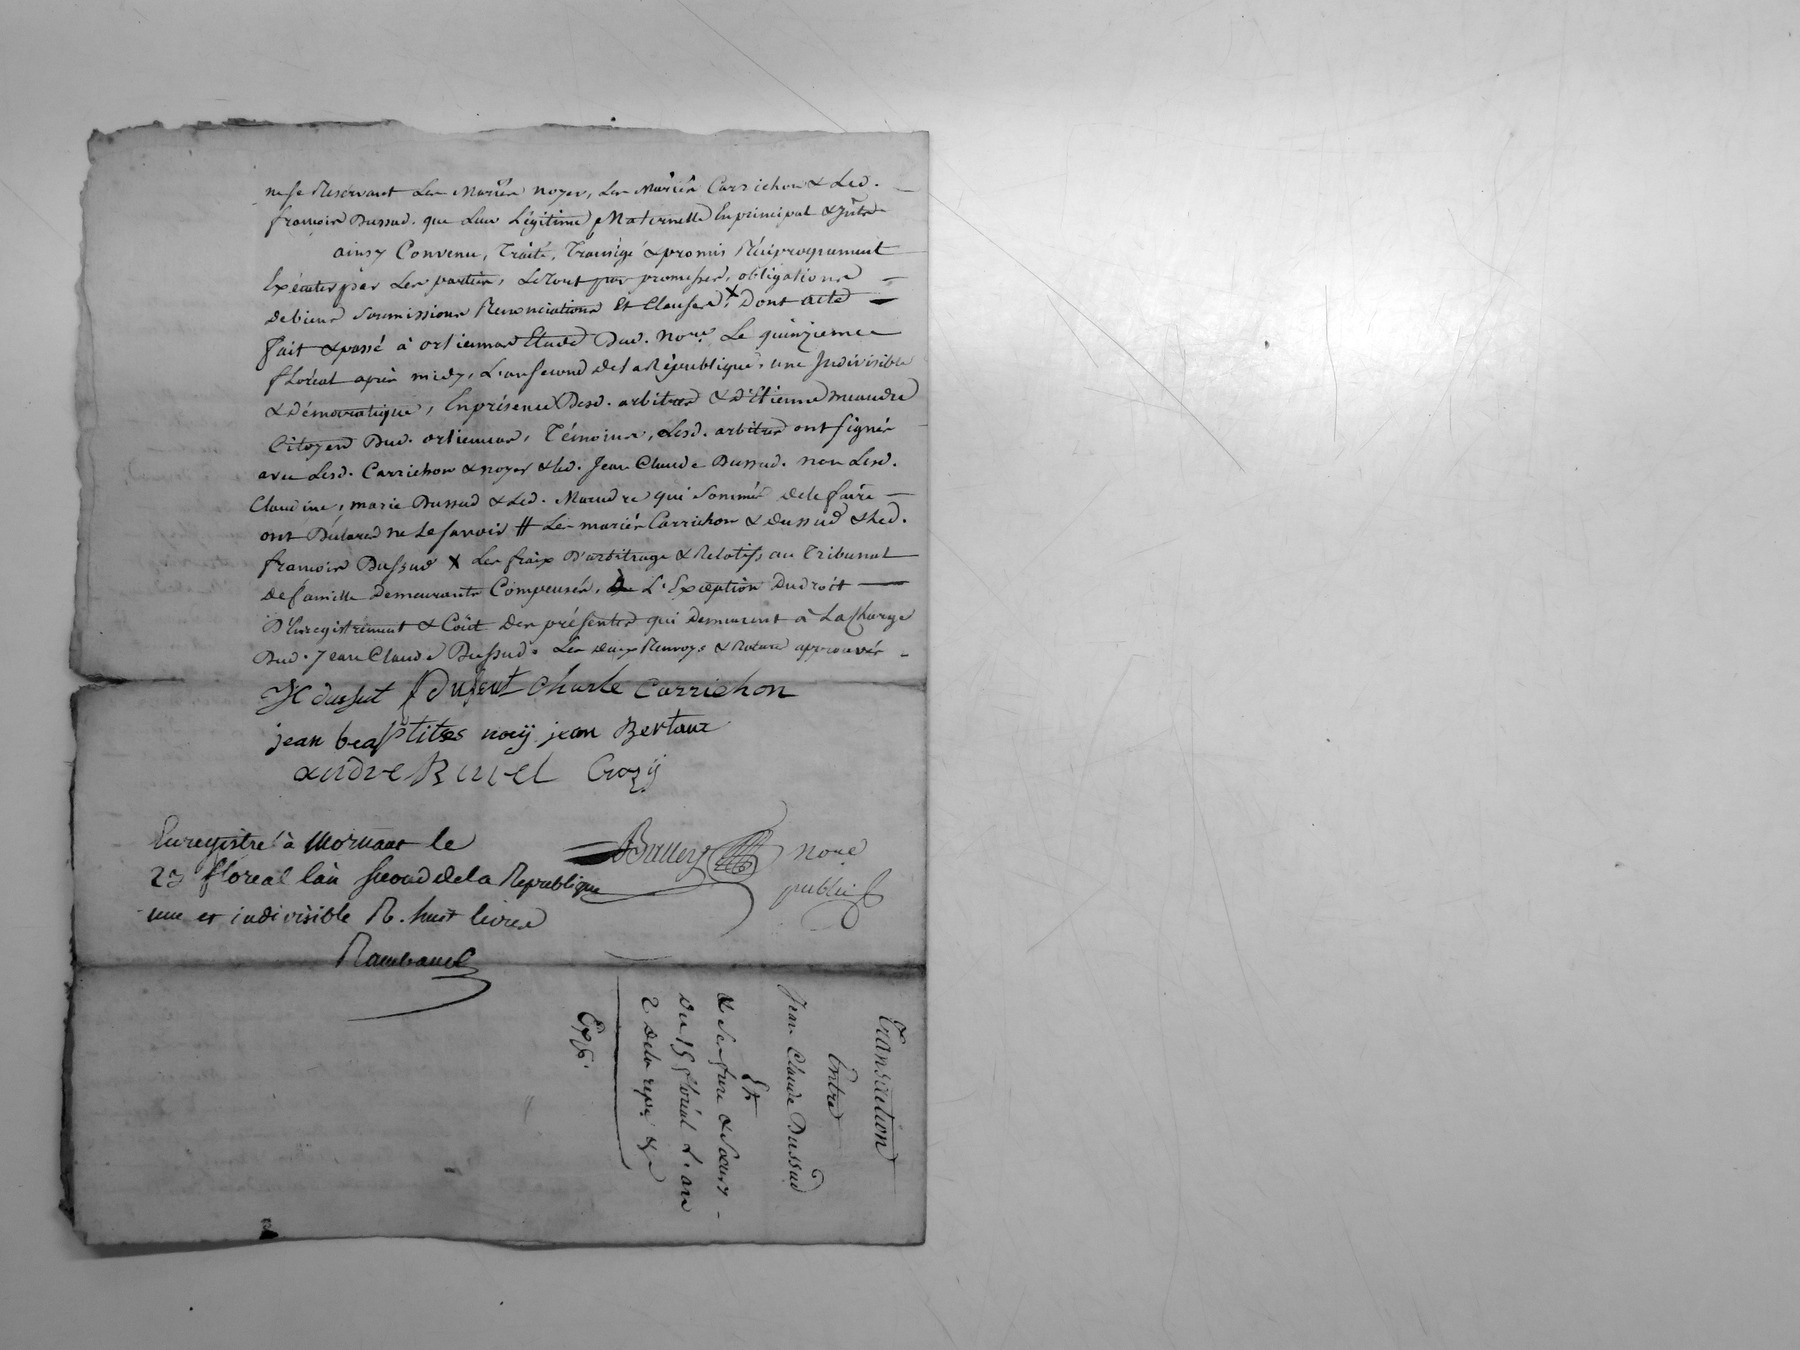 ne se Reservant Les Mariés noyer, Les Mariés Carrichon & Led.
françois Dussud. que Leur Légitime Maternelle En principal &
ainsy Convenu, Traité, Transigé & promis Réciproquement
Exécuter par Les parties, Le tout par promesses, obligations
de biens Soumissions Renonciations Et Clauses, X Dont acte
fait & passé à orliennas Etude Dud. nore. Le quinzieme
floréal après midy, L'an second de la République, une Indivisible
& démocratique, En présence Desd. arbitres & d'Etienne meandre
Citoyen Dud. orliennas, Témoins, Lesd. arbitres ont signés
avec Lesd. Carrichon & noyer & led. Jean Claude Dussud. non Lesd.
Claudine, marie Dussud & Led. Mandre qui Sommés de le faire
ont Déclarés ne Le savoir # Les mariés Carrichon & dussud & led.
françois Dussud X Les fraix D'arbitrage & Relatifs au Tribunal
de famille demeurants Compensés, à L'Exception Du droit
D'Enregistrement & Coût Des présentes qui Demeurent à La Charge
Dud. Jean Claude Dussud. Les deux Renvoys & Rature approuvés
JC dussut f Dussut Charle Carrichon
jean baptites noyj jean Bertaux
andre Rivel Crozij
Enregistré à Mornant le
23 floreal l'an second de la Republique
une et indivisible R. huit livres
nore
public
Transaction
Entre
Jean Claude Dussud
Et
& ses frere & Sœurs
du 15 floréal L'an
2 de la repe. &e
Expe.